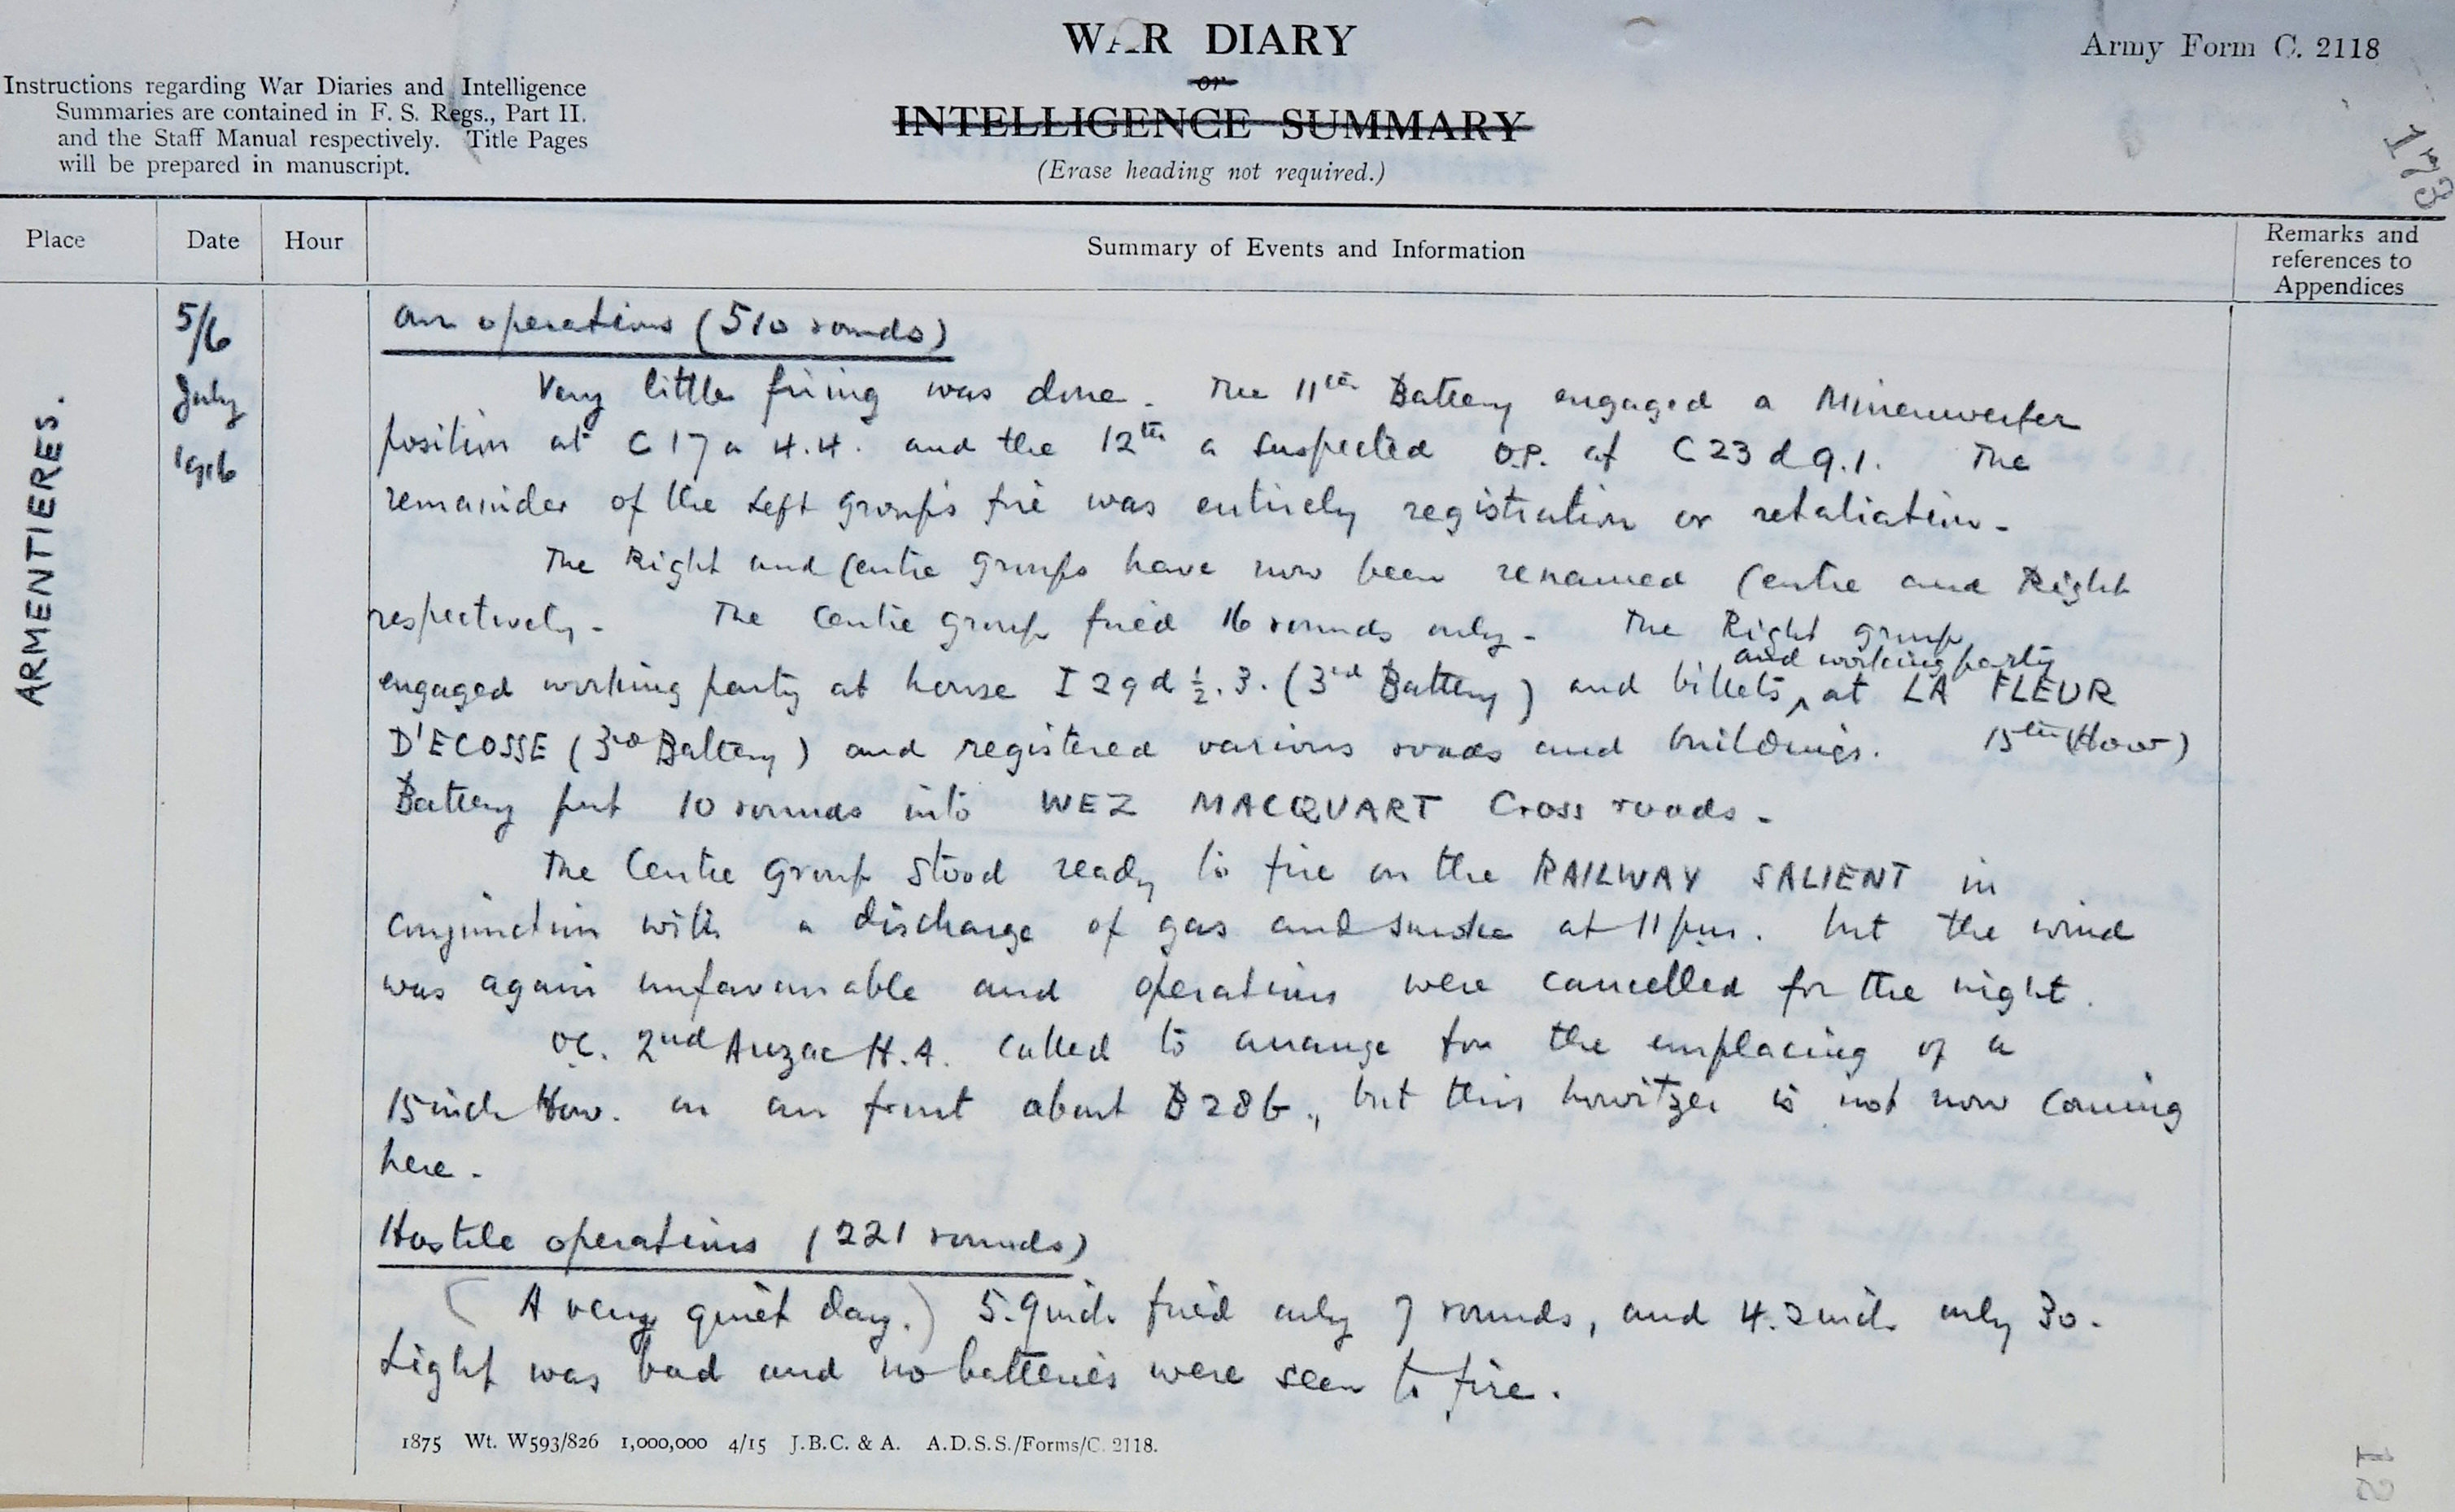 WAR DIARY
or
INTELLIGENCE SUMMARY
(Erase heading not required.)
Army Form C. 2118
Instructions regarding War Diaries and Intelligence
Summaries are contained in F. S. Regs., Part II.
and the Staff Manual respectively. Title Pages
will be prepared in manuscript.
173
Place
Date
Hour
Summary of Events and Information
Remarks and
references to
Appendices
ARMENTIERES.
5/6
July
1916
Our operations (510 rounds)
Very little firing was done. The 11th Battery engaged a Minenwerfer
position at C 17 a 4.4. and the 12th a suspected O.P. at C 23 d 9.1. The
remainder of the Left group's fire was entirely registration or retaliation.
The Right and Centre groups have now been renamed Centre and Right
respectively. The Centre group fired 16 rounds only. The Right group
engaged working party at house I 29 d ½.3. (3rd Battery) and billets and working party at LA FLEUR
D'ECOSSE (3rd Battery) and registered various roads and buildings. 15th (How)
Battery put 10 rounds into WEZ MACQUART Cross roads.
The Centre Group stood ready to fire on the RAILWAY SALIENT in
conjunction with a discharge of gas and smoke at 11 p.m. but the wind
was again unfavourable and operations were cancelled for the night.
O.C. 2nd Anzac H.A. called to arrange for the emplacing of a
15 inch How. on our front about B 28 b., but this howitzer is not now coming
here.
Hostile operations (221 rounds)
(A very quiet day.) 5.9 inch fired only 7 rounds, and 4.2 inch only 30.
Light was bad and no batteries were seen to fire.
1875 Wt. W593/826 1,000,000 4/15 J.B.C. & A. A.D.S.S./Forms/C. 2118.
12